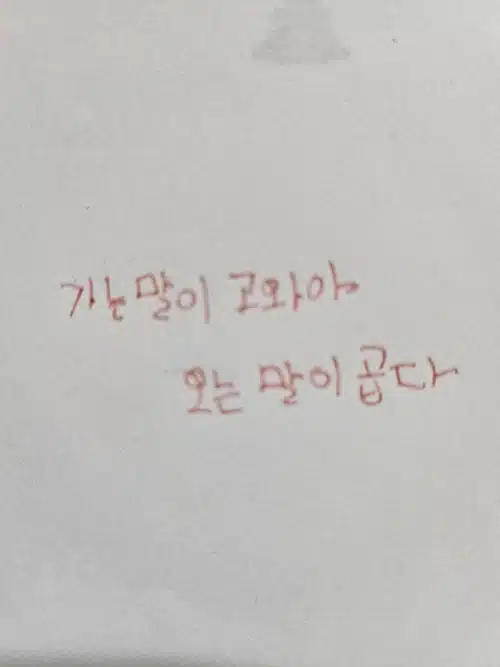 가는 말이 고와야
오는 말이 곱다